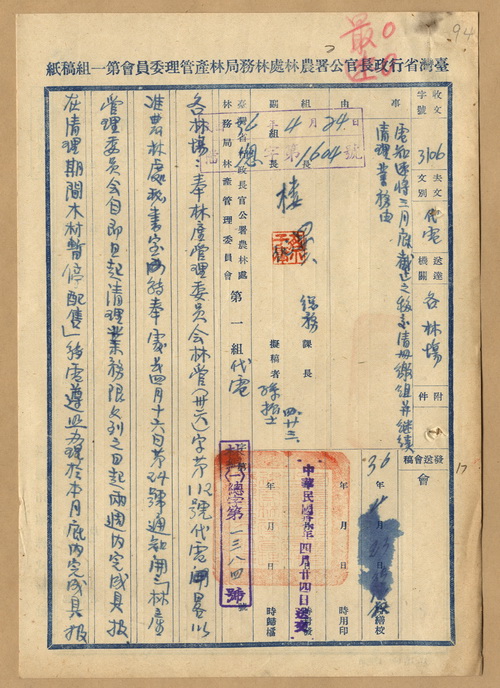 94
最速
臺灣省行政長官公署農林處林務局林產管理委員會第一組稿紙
收文字號
3106
去文別
代電
送達機關
各林場
附件
事由
電知速將三月底截止之移交清冊繳組並繼續
清理業務由
36年4月24日
總字第1604號
組長
課長
擬稿者
四、廿三
會
發送會稿
36年
年月日時用印
年月日
年月日時歸檔
中華民國年四月廿四日送發
總字第一三八四號
臺灣省行政長官公署農林處
林務局林產管理委員會
第一組代電
各林場：奉林產管理委員會林管(卅六)字第112號代電開暑以
准農林處秘書室函特奉電四月十六日第24號通知開「林產
管理委員會自即日起清理業務限文到之日起兩週內完成具報
在清理期間木材暫停配售」特電遵照办理於本月底內完成具報